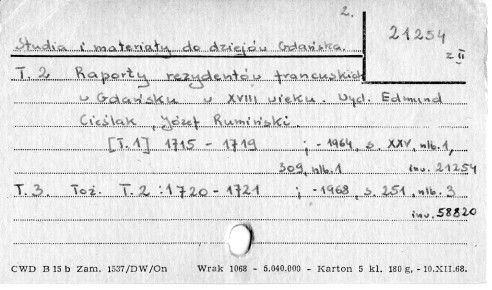 2.
21254
z II
Studia i materiały do dziejów Gdańska.
T. 2 Raporty rezydentów francuskich
w Gdańsku w XVIII wieku. Wyd. Edmund
Cieślak, Józef Rumiński.
[T.1] 1715 - 1719 ; - 1964, s. XXV, nlb.1,
309, nlb.1 inw. 21254
T. 3. Toż. T. 2 : 1720 - 1721 ; - 1968, s. 251, nlb. 3
inw. 58820
CWD B 15 b Zam. 1537/DW/On Wrak 1068 - 5.040.000 - Karton 5 kl. 180 g, - 10.XII.68.